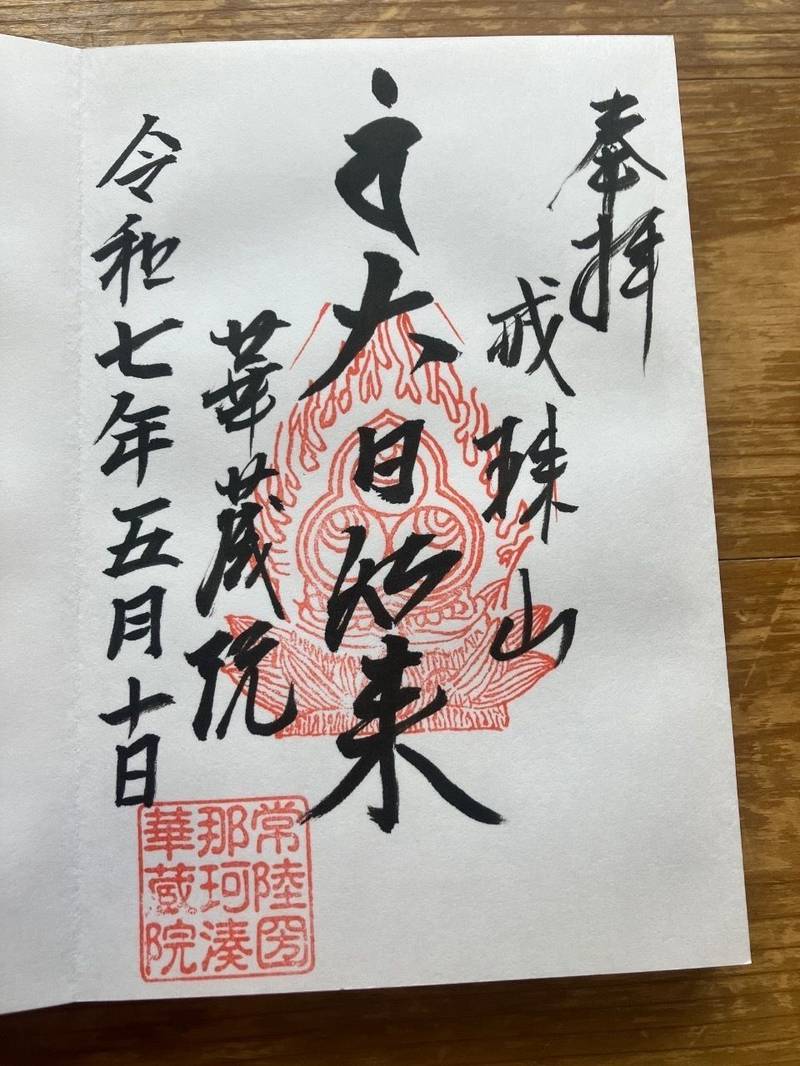 奉拝
戒珠山
大日如来
華蔵院
令和七年五月十日
常陸圀
那珂湊
華蔵院